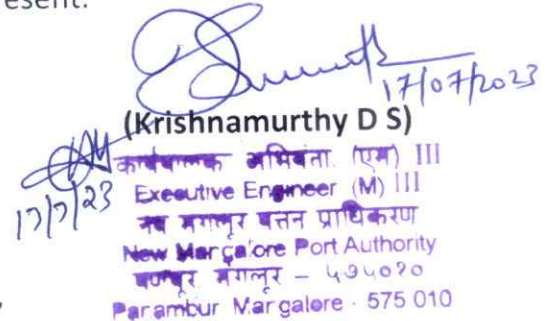 esent.
17/07/2023
(Krishnamurthy D S)
17/7/23
कार्यपालक अभियंता (एम) III
Executive Engineer (M) III
नव मंगलूर पत्तन प्राधिकरण
New Mangalore Port Authority
मंगलूर - ५७५०१०
Mangalore - 575 010